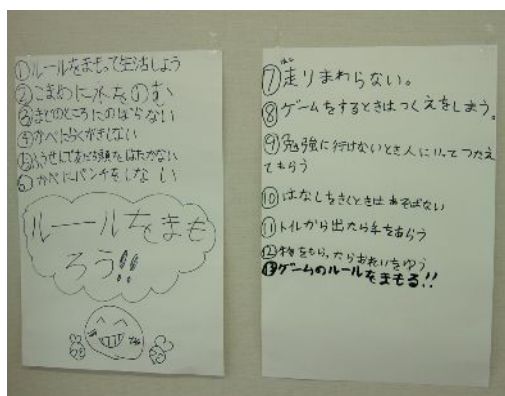 ①ルールをまもって生活しよう
②こまめに水をのむ
③まどのところにのぼらない
④かべにらくがきしない
⑤ふうせんで友だち頭をはたかない
⑥かべにパンチをしない
ルールをまも
ろう!!
はし
⑦走りまわらない。
⑧ゲームをするときはつくえをしまう。
⑨勉強に行けないとき人にいってつたえ
てもらう
⑩はなしをきくときはあそばない
⑪トイレから出たら手をあらう
⑫物をもらったらおれいをゆう
⑬ゲームのルールをまもる!!